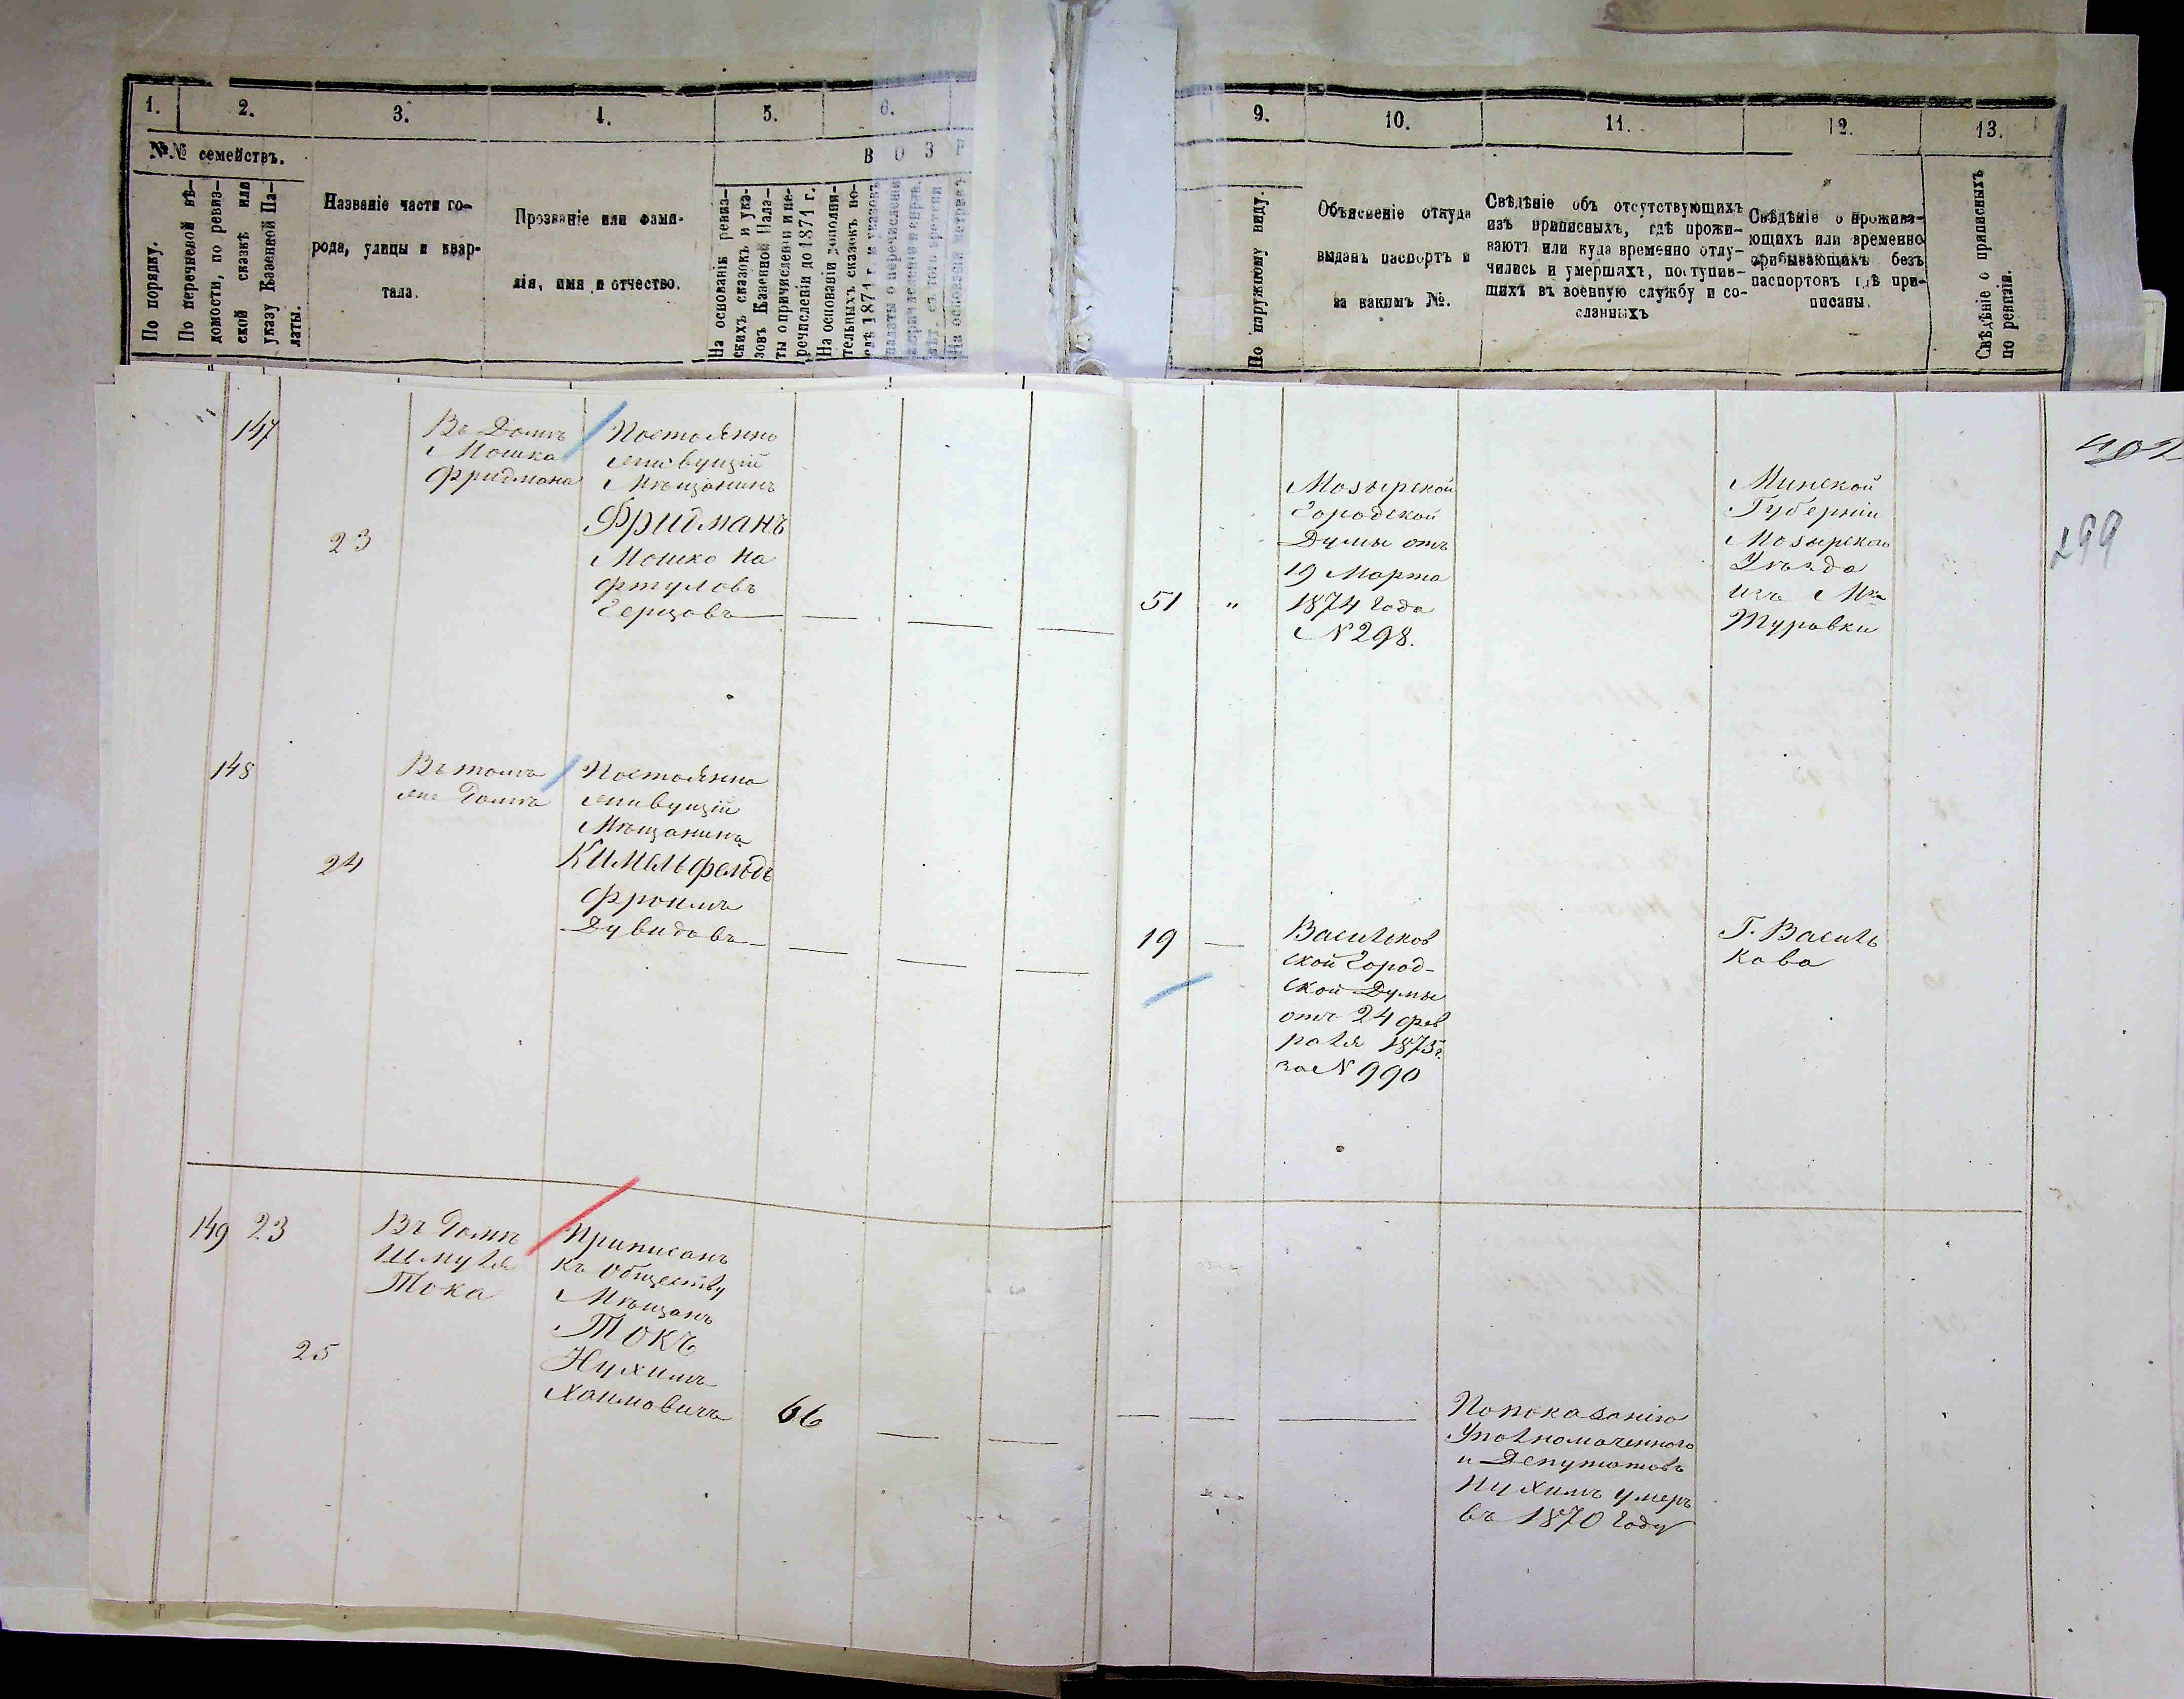 1. 2. 3. 4. 5. 6.
№№ семействъ.
В О З Р
По порядку.
По перечневой вѣ-
домости, по ревиз-
ской сказкѣ или
указу Казенной Па-
латы.
Названіе части го-
рода, улицы и квар-
тала.
Прозваніе или фами-
лія, имя и отчество.
На основаніи ревиз-
скихъ сказокъ и ука-
зовъ Казенной Пала-
ты о причисленіи и пе-
речисленіи до 1874 г.
На основаніи дополни-
тельныхъ сказокъ по-
слѣ 1874 г. и указовъ
палаты о перечисленіи
На основаніи метрикъ
9. 10. 11. 12. 13.
По наружному виду.
Объясненіе откуда
выданъ паспортъ и
за какимъ №.
Свѣдѣніе объ отсутствующихъ
изъ приписныхъ, гдѣ прожи-
ваютъ или куда временно отлу-
чились и умершихъ, поступив-
шихъ въ военную службу и со-
сланныхъ
Свѣдѣніе о прожива-
ющихъ или временно
прибывающихъ безъ
паспортовъ гдѣ при-
писаны.
Свѣдѣніе о приписныхъ
по ревизіи.
147
23
Въ Домѣ
Мошка
Фридмана
Постоянно
живущій
Мѣщанинъ
Фридманъ
Мошко На
фтуловъ
Герцовъ
51 "
Мозырской
Городской
Думы отъ
19 Марта
1874 года
№ 298.
Минской
Губерніи
Мозырскаго
Уѣзда
изъ Мка
Туровки
299
148
24
Въ томъ
же Домѣ
Постоянно
живущій
Мѣщанинъ
Кимельфельдъ
Фроимъ
Дувидовъ
19
Васильков
ской Город-
ской Думы
отъ 24 фев
раля 1875 г.
за № 990
Г. Василь
кова
149 23
25
Въ Домѣ
Шмуля
Тока
Приписанъ
къ Обществу
Мѣщанъ
ТОКЪ
Нухимъ
Хаимовичъ
66
По показанію
Уполномоченнаго
и Депутатовъ
Нухимъ умеръ
въ 1870 году